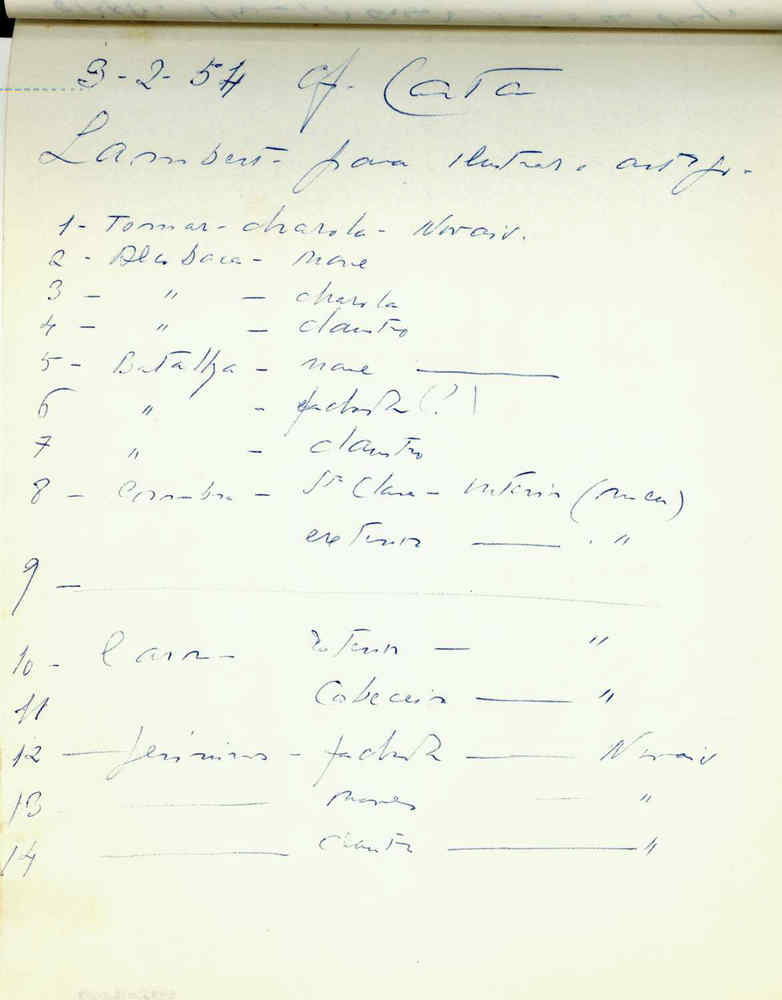 3-2-54 of. Cata
Lambert - para ilustrar o artigo -
1- Tomar - charola - Novais.
2 - Alcobaca - nave
3 - " - charola
4 - " - claustro
5 - Batalha - nave
6 " - fachada (?)
7 " - claustro
8 - Coimbra - Sta Clara - interior
exterior "
9 -
10 - interior - "
11 Cabeceira "
12 - Jerónimos - fachada Novais
13 naves "
14 Claustro "